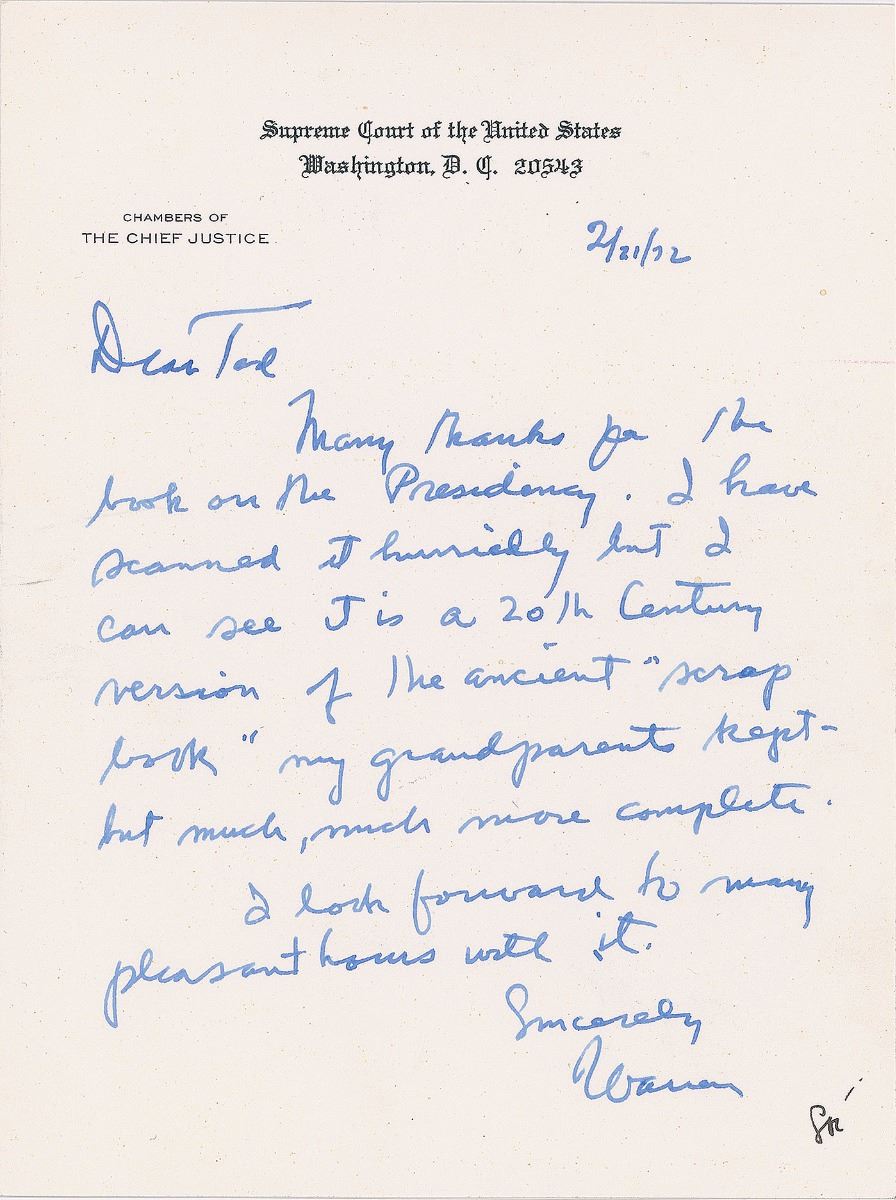 Supreme Court of the United States
Washington, D. C. 20543
CHAMBERS OF
THE CHIEF JUSTICE
2/21/72
Dear Ted
Many thanks for the
book on the Presidency. I have
scanned it hurriedly but I
can see it is a 20th Century
version of the ancient "scrap
book" my grandparents kept-
but much, much more complete.
I look forward to many
pleasant hours with it.
Sincerely
Warren